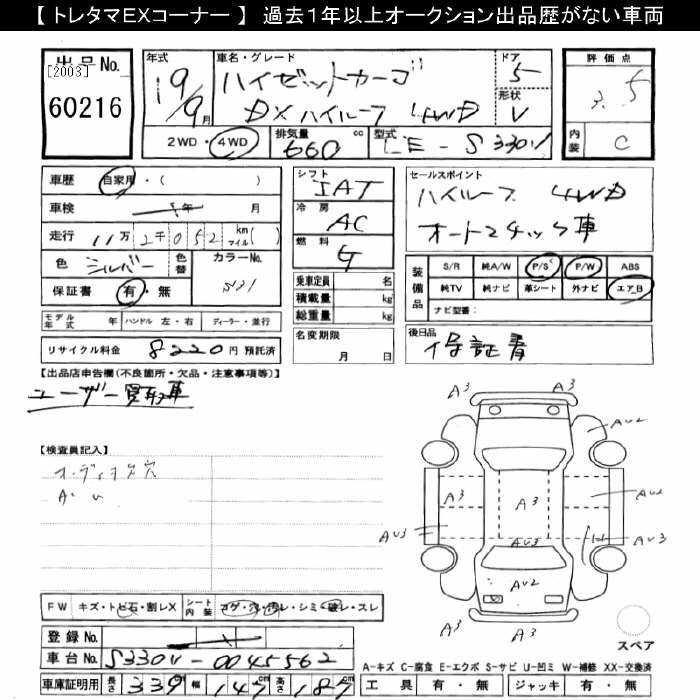 【 トレタマEXコーナー 】 過去１年以上オークション出品歴がない車両
出品No.
[2003]
60216
年式
19/9月
車名・グレード
ハイゼットカーゴ
DX ハイルーフ 4WD
ドア
5
形状
V
2WD・4WD
排気量
660 cc
型式
LE-S330V
評価点
3.5
内装
C
車歴 自家用・( )
車検 年 月
走行 11万2千052 km マイル( )
色 シルバー 色替 カラーNo. S21
保証書 有・無
モデル年式 年 ハンドル 左・右 ディーラー・並行
リサイクル料金 8220円 預託済
シフト
IAT
冷房
AC
燃料
G
乗車定員 名
積載量 kg
総重量 kg
名変期限
月 日
セールスポイント
ハイルーフ 4WD
オートマチック車
装備品
S/R 純A/W P/S P/W ABS
純TV 純ナビ 革シート 外ナビ エアB
ナビ型番:
後日品
保証書
【出品店申告欄(不良箇所・欠品・注意事項等)】
ユーザー買取車
【検査員記入】
オーディオ欠穴
A・U
FW キズ・トビ石・割レX シート内装 コゲ・穴・汚レ・シミ・破レ・スレ
登録No.
車台No. S330V-0045562
車庫証明用 長さ 339cm 幅 147cm 高さ 187cm
A3 A3
AU2
A3 A3 AU2
AU3 AU3 AU3
AU2
A3 A3
スペア
A-キズ C-腐食 E-エクボ S-サビ U-凹ミ W-補修 XX-交換済
工具 有・無 ジャッキ 有・無